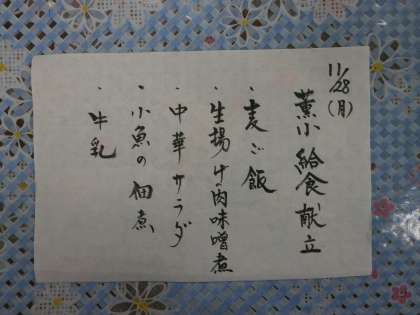 11/28(月)
薫小給食献立
・麦ご飯
・生揚げ肉味噌煮
・中華サラダ
・小魚の佃煮
・牛乳